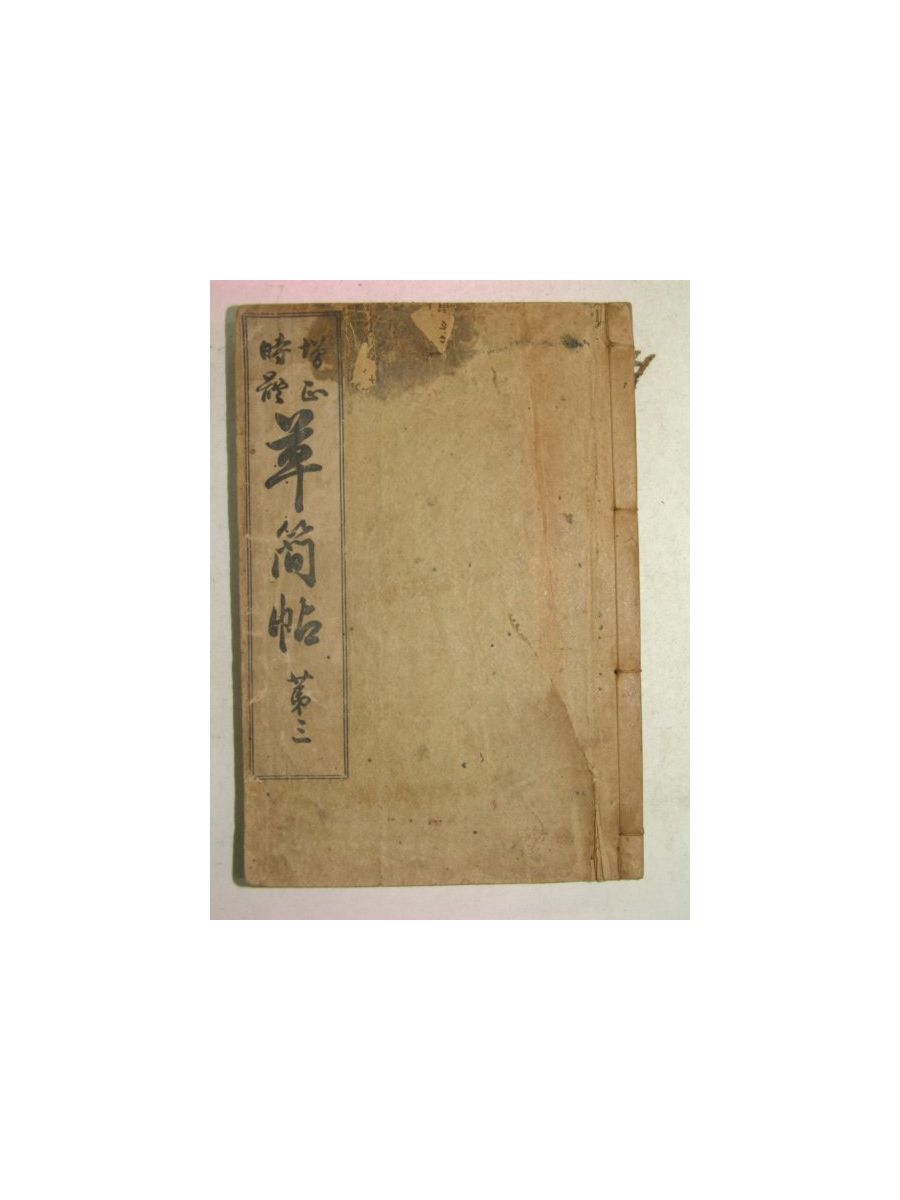 增正
時體
草簡帖
第三